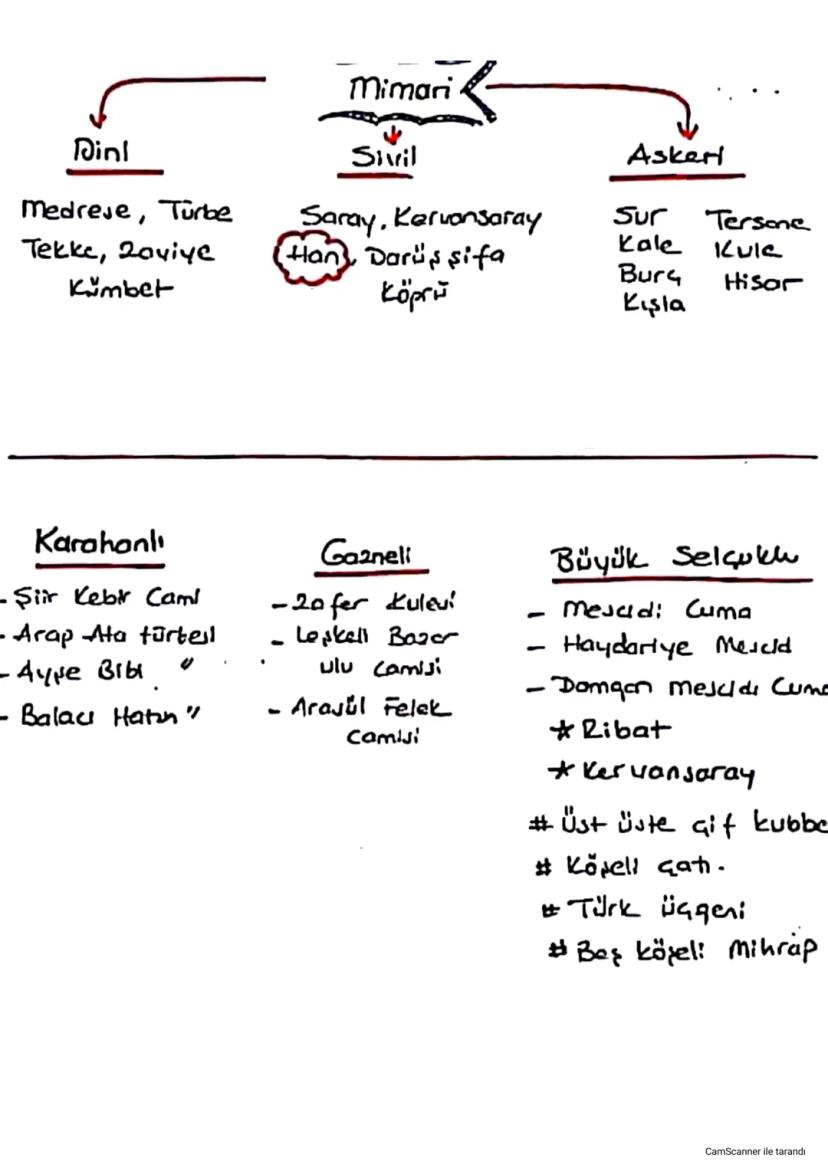 Mimari
Dini
Medrese, Türbe
Tekke, Zaviye
Kümbet
Sivil
Saray, Kervansaray
Han, Darüşşifa
Köprü
Askeri
Sur Tersane
Kale Kule
Burç Hisar
Kışla
Karahanlı
- Şiir Kebir Cami
- Arap Ata türbesi
- Ayşe Bibi "
- Balacı Hatun "
Gazneli
- Zafer Kulesi
- Leşkeli Bazar
ulu camisi
- Arasül Felek
camisi
Büyük Selçuklu
- Mescidi Cuma
- Haydariye Mescid
- Damgan mescidi Cuma
* Ribat
* Kervansaray
# Üst üste çif kubbe
# Köşeli çatı.
# Türk üçgeni
# Beş köşeli Mihrap
CamScanner ile tarandı